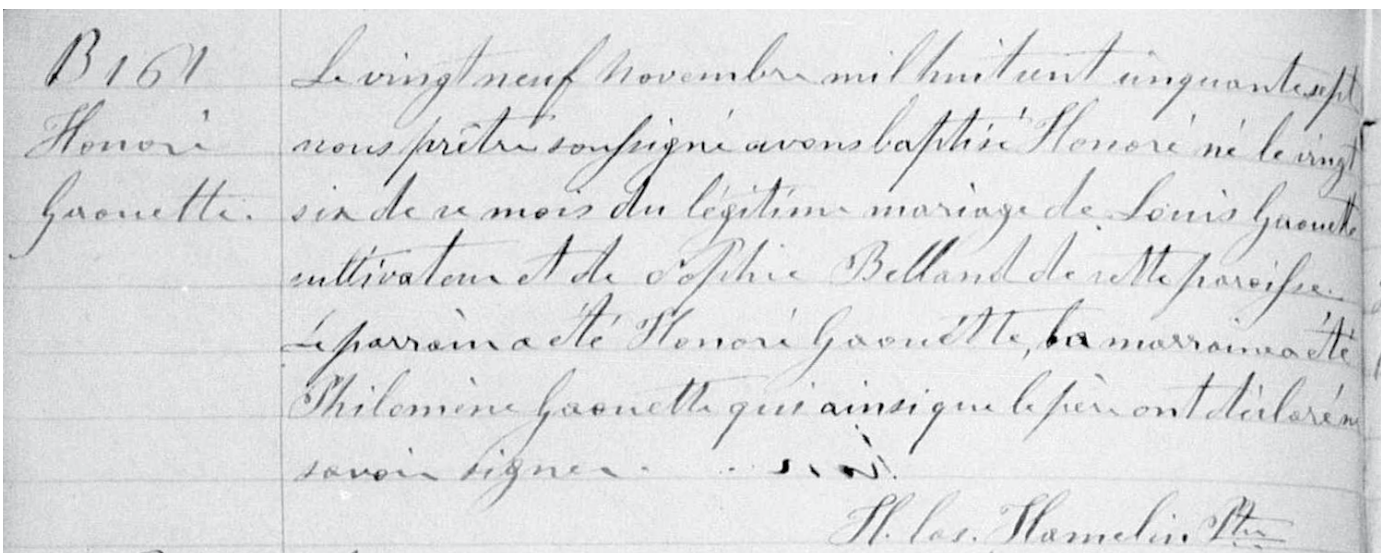 B 161
Honoré
Gaouette.
Le vingt neuf Novembre mil huit cent cinquante sept
nous prêtre soussigné avons baptisé Honoré né le vingt
six de ce mois du légitime mariage de Louis Gaouette
cultivateur et de Sophie Belland de cette paroisse.
Le parrain a été Honoré Gaouette, la marraine a été
Philomène Gaouette qui ainsi que le père ont déclaré ne
savoir signer.
H. Cas. Hamelin Ptre